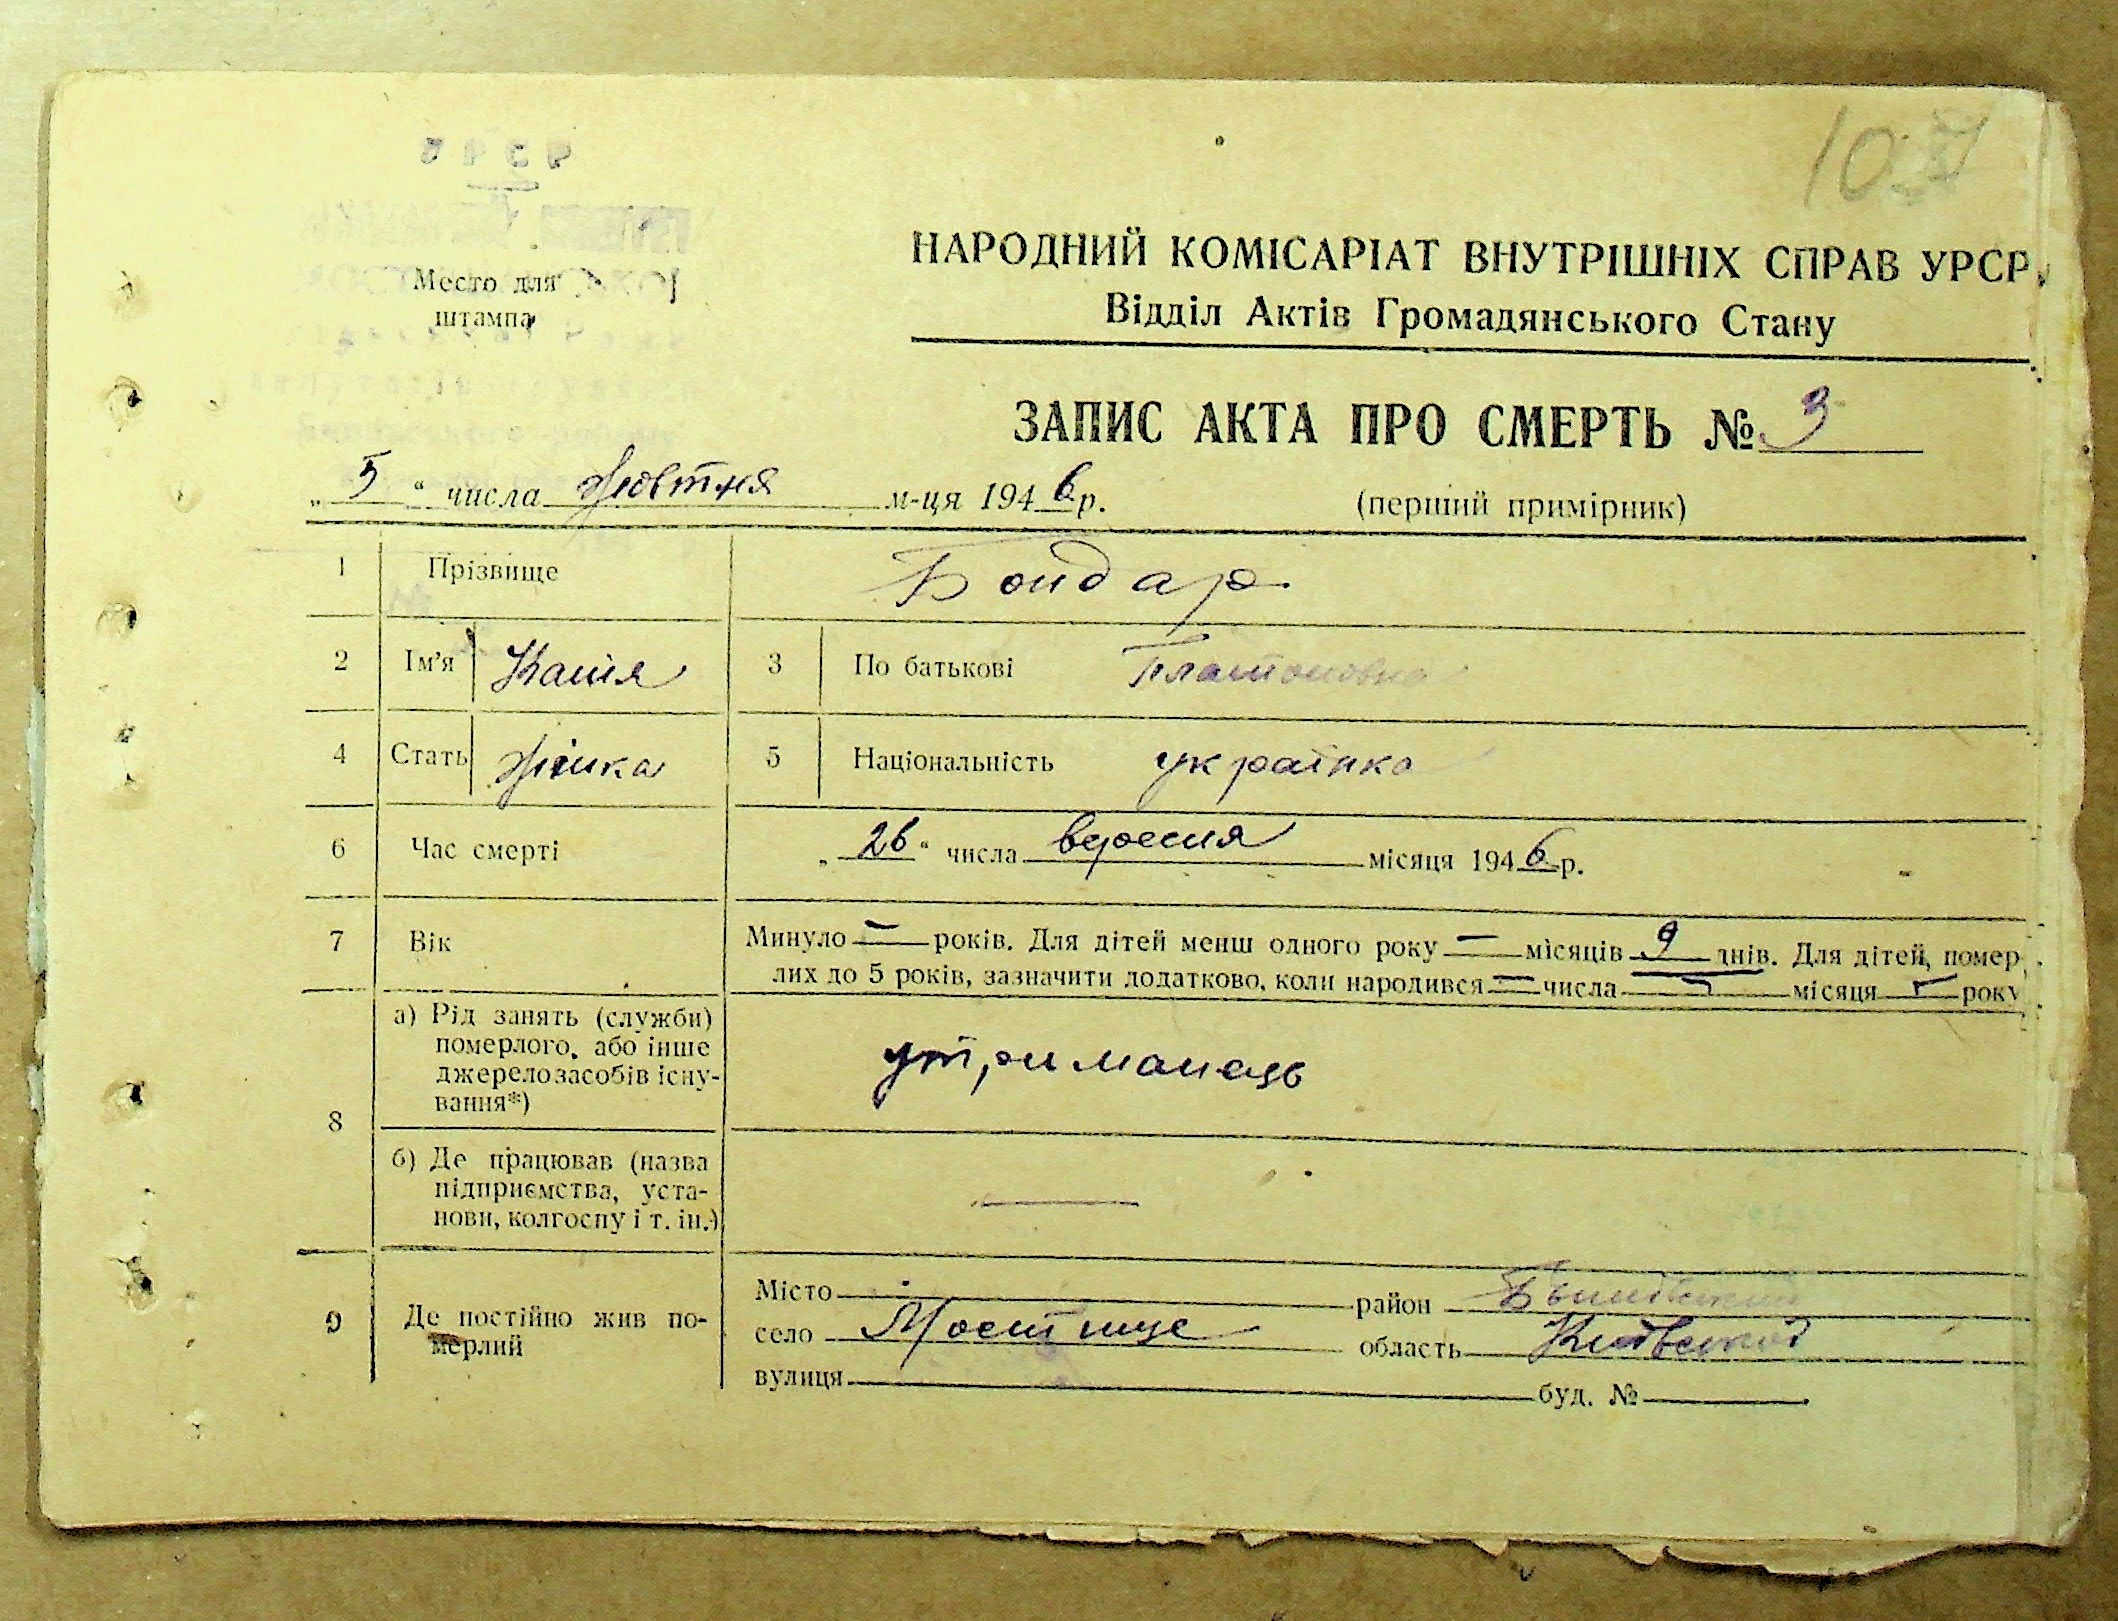 107
Место для
штампа
НАРОДНИЙ КОМІСАРІАТ ВНУТРІШНІХ СПРАВ УРСР
Відділ Актів Громадянського Стану
ЗАПИС АКТА ПРО СМЕРТЬ № 3
„ 5 “ числа жовтня м-ця 1946 р. (перший примірник)
1 Прізвище Бондар
2 Ім’я Катя 3 По батькові Платоновна
4 Стать жінка 5 Національність українка
6 Час смерті „ 26 “ числа вересня місяця 1946 р.
7 Вік Минуло — років. Для дітей менш одного року — місяців 9 днів. Для дітей, помер
лих до 5 років, зазначити додатково, коли народився — числа — місяця — року
8 а) Рід занять (служби)
померлого, або інше
джерело засобів існу-
вання*)
утриманець
б) Де працював (назва
підприємства, уста-
нови, колгоспу і т. ін.)
—
9 Де постійно жив по-
мерлий
Місто район
село Мостище область Київської
вулиця буд. №